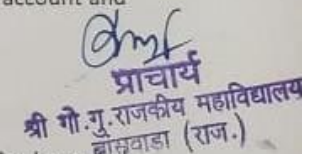 account and
प्राचार्य
श्री गो.गु.राजकीय महाविद्यालय
बांसवाडा (राज.)